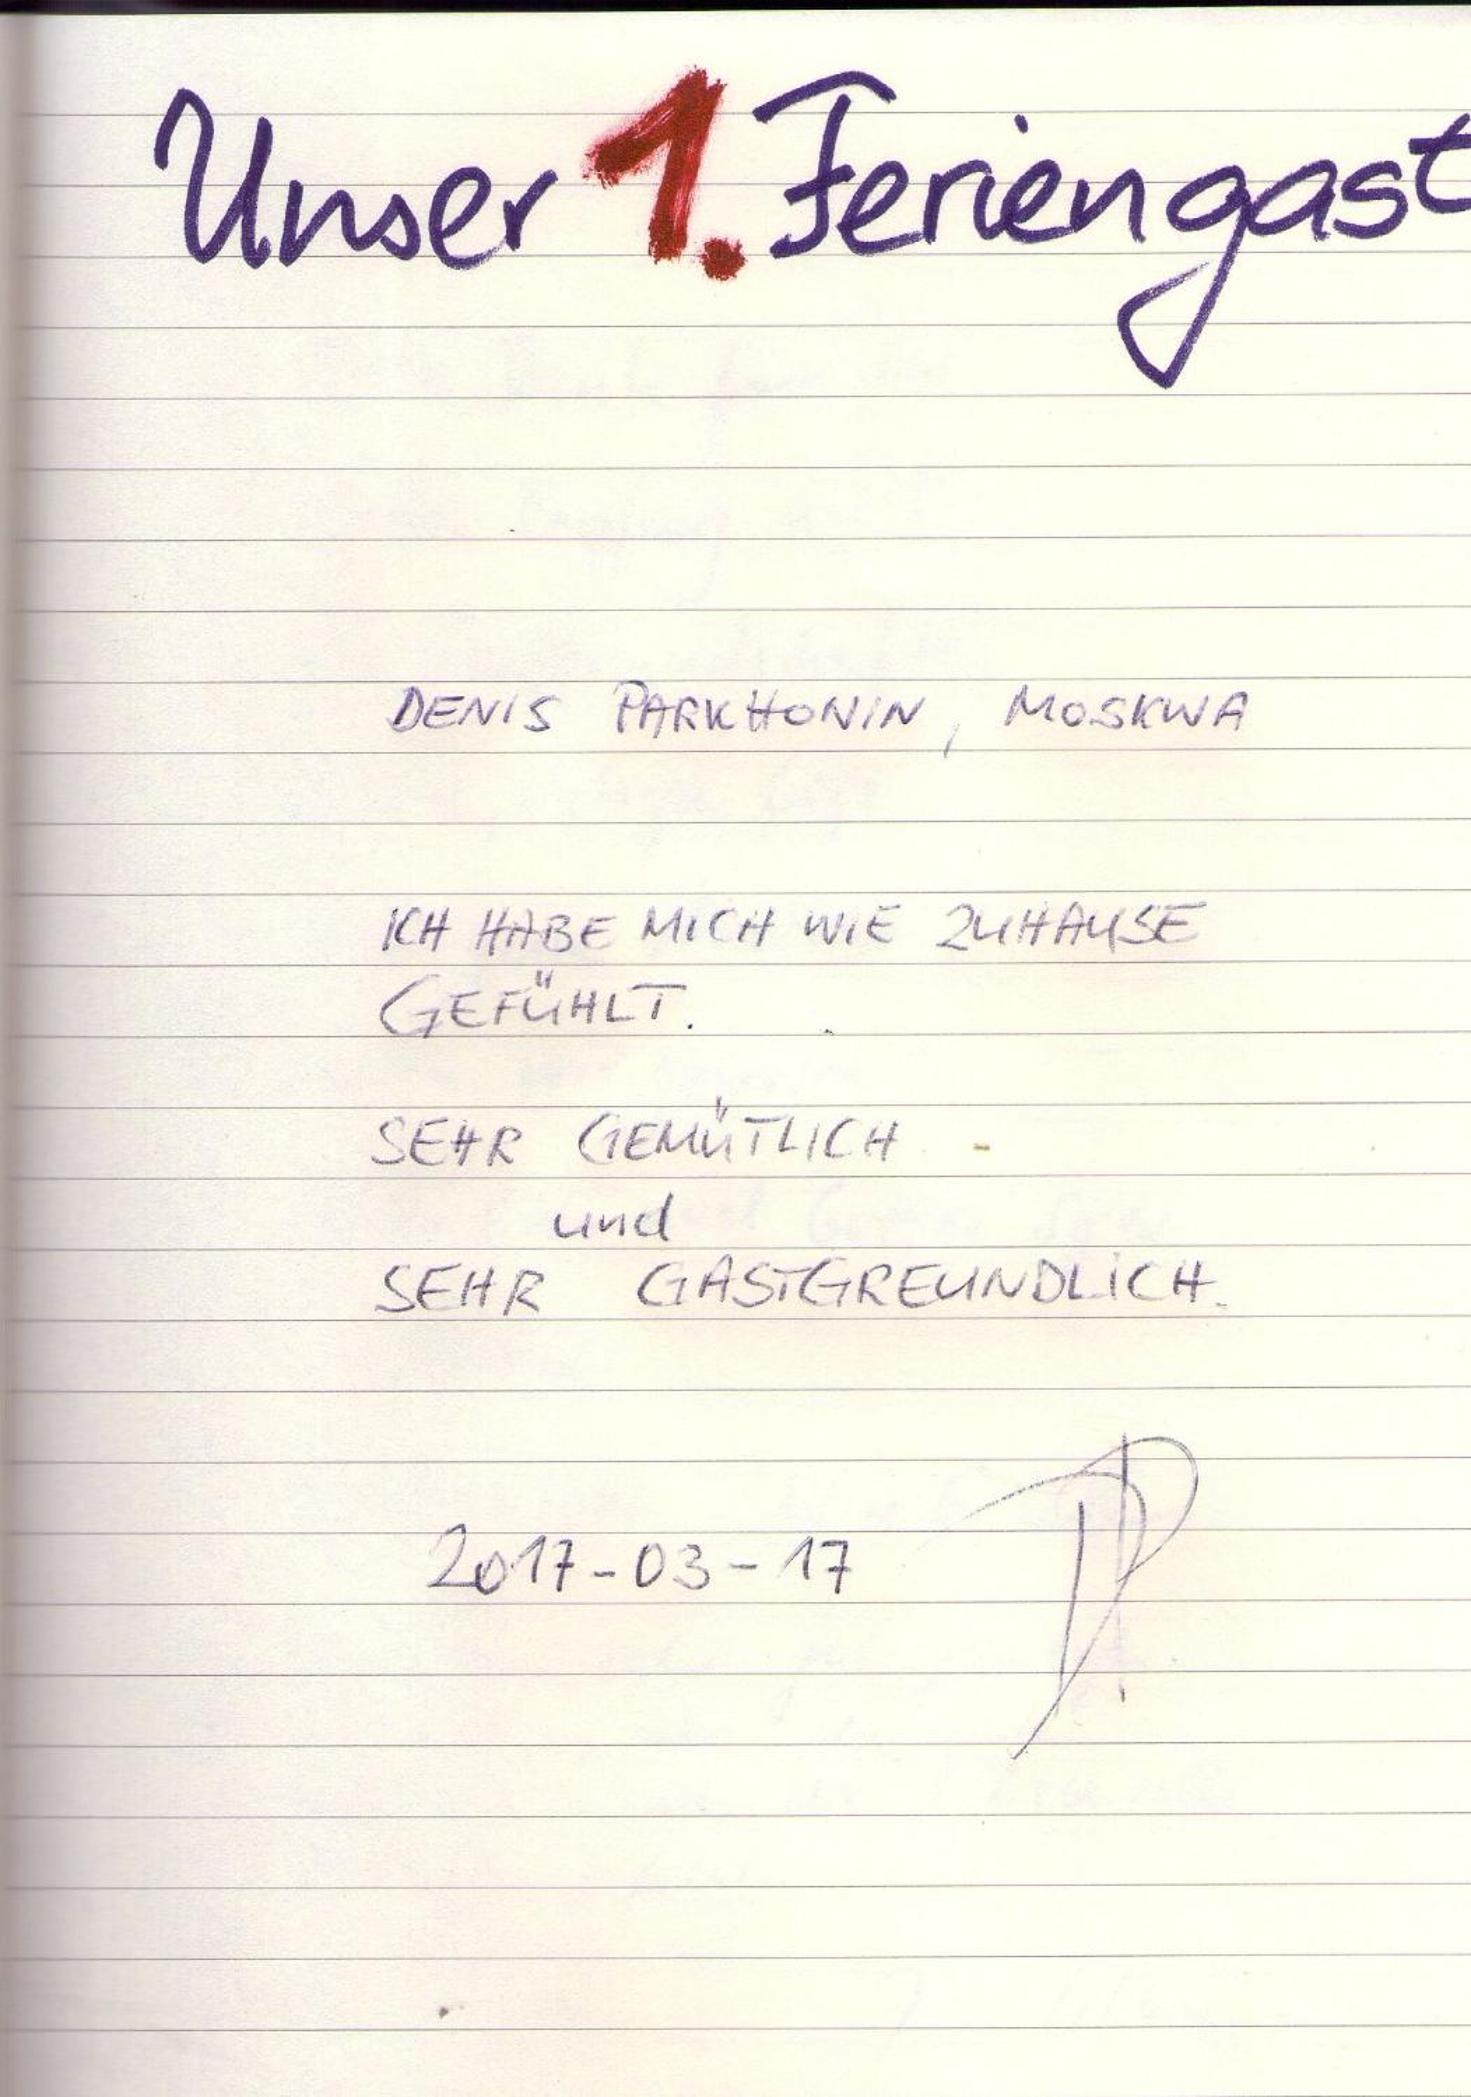 Unser 1. Feriengast
DENIS PARKHONIN, MOSKWA
ICH HABE MICH WIE ZUHAUSE
GEFÜHLT.
SEHR GEMÜTLICH
und
SEHR GASTGREUNDLICH.
2017-03-17